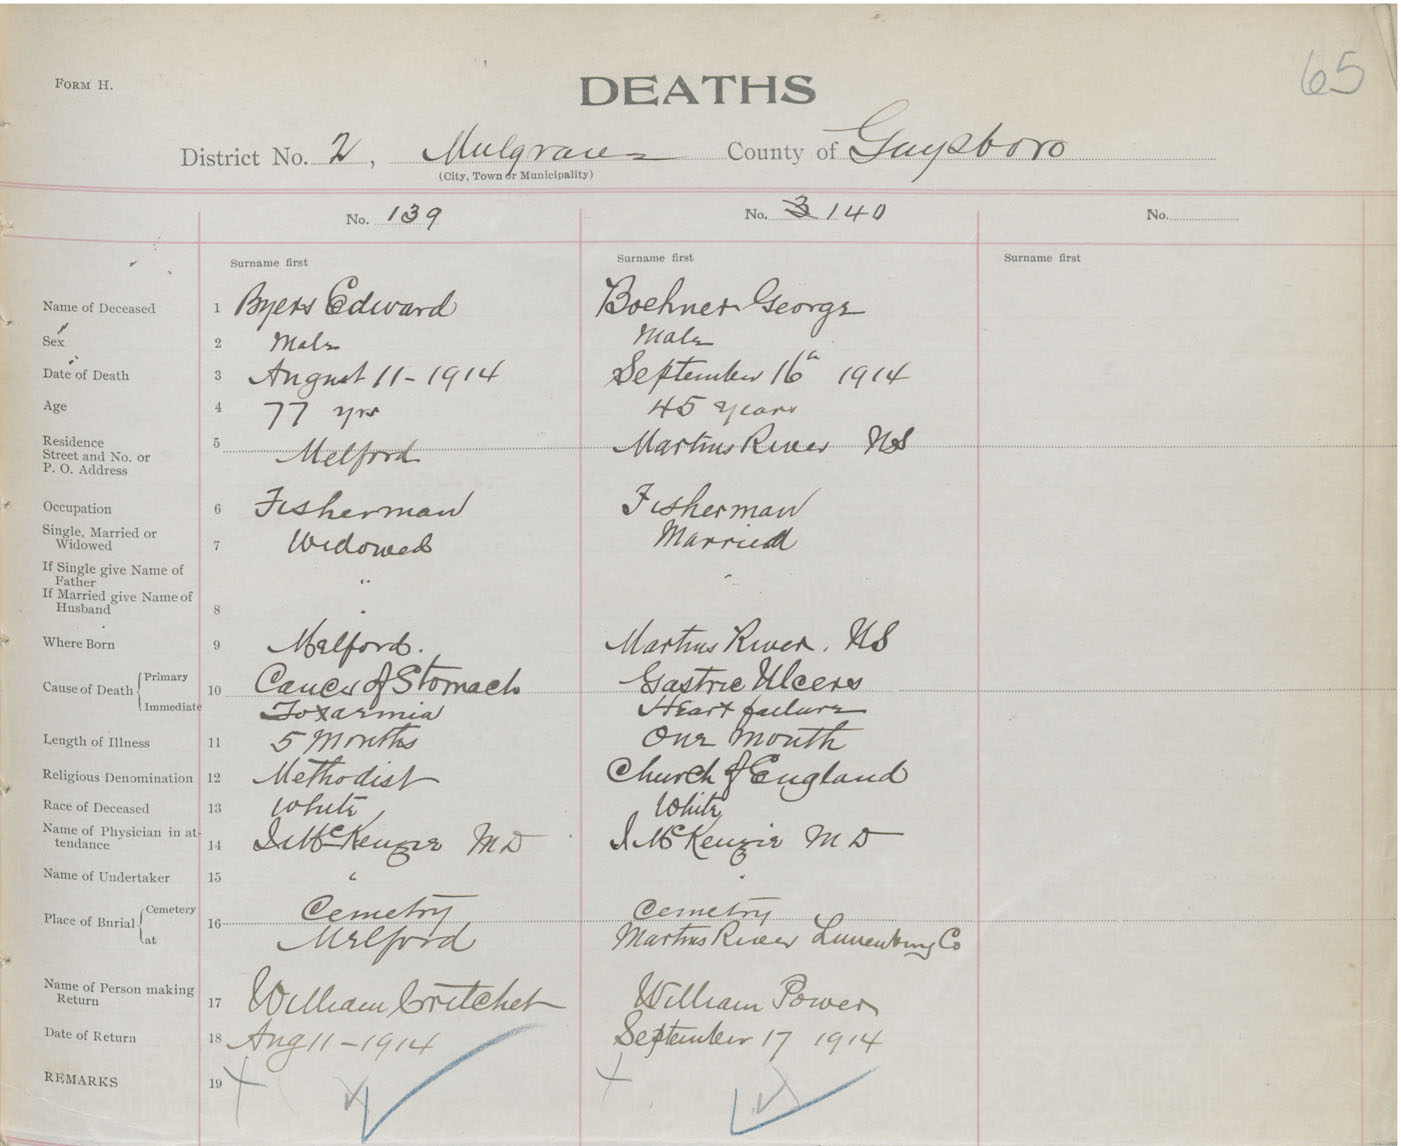 65
FORM H.
DEATHS
District No. 2, Mulgrave County of Guysboro
(City, Town or Municipality)
No. 139 No. 3 140 No.
Surname first Surname first Surname first
Name of Deceased 1 Byers Edward Boehner George
Sex 2 Male Male
Date of Death 3 August 11 - 1914 September 16th 1914
Age 4 77 yrs 45 years
Residence
Street and No. or
P. O. Address 5 Melford Martins River NS
Occupation 6 Fisherman Fisherman
Single, Married or
Widowed 7 Widowed Married
If Single give Name of
Father "
If Married give Name of
Husband 8
Where Born 9 Melford. Martins River. NS
Cause of Death { Primary 10 Cancer of Stomach Gastric Ulcers
Immediate Toxaemia Heart failure
Length of Illness 11 5 Months One Month
Religious Denomination 12 Methodist Church of England
Race of Deceased 13 White White
Name of Physician in at-
tendance 14 McKenzie MD McKenzie MD
Name of Undertaker 15 "
Place of Bnrial { Cemetery 16 Cemetry Cemetry
at Melford Martins River Lunenburg Co
Name of Person making
Return 17 William Critchet William Power
Date of Return 18 Aug 11 - 1914 September 17 1914
REMARKS 19